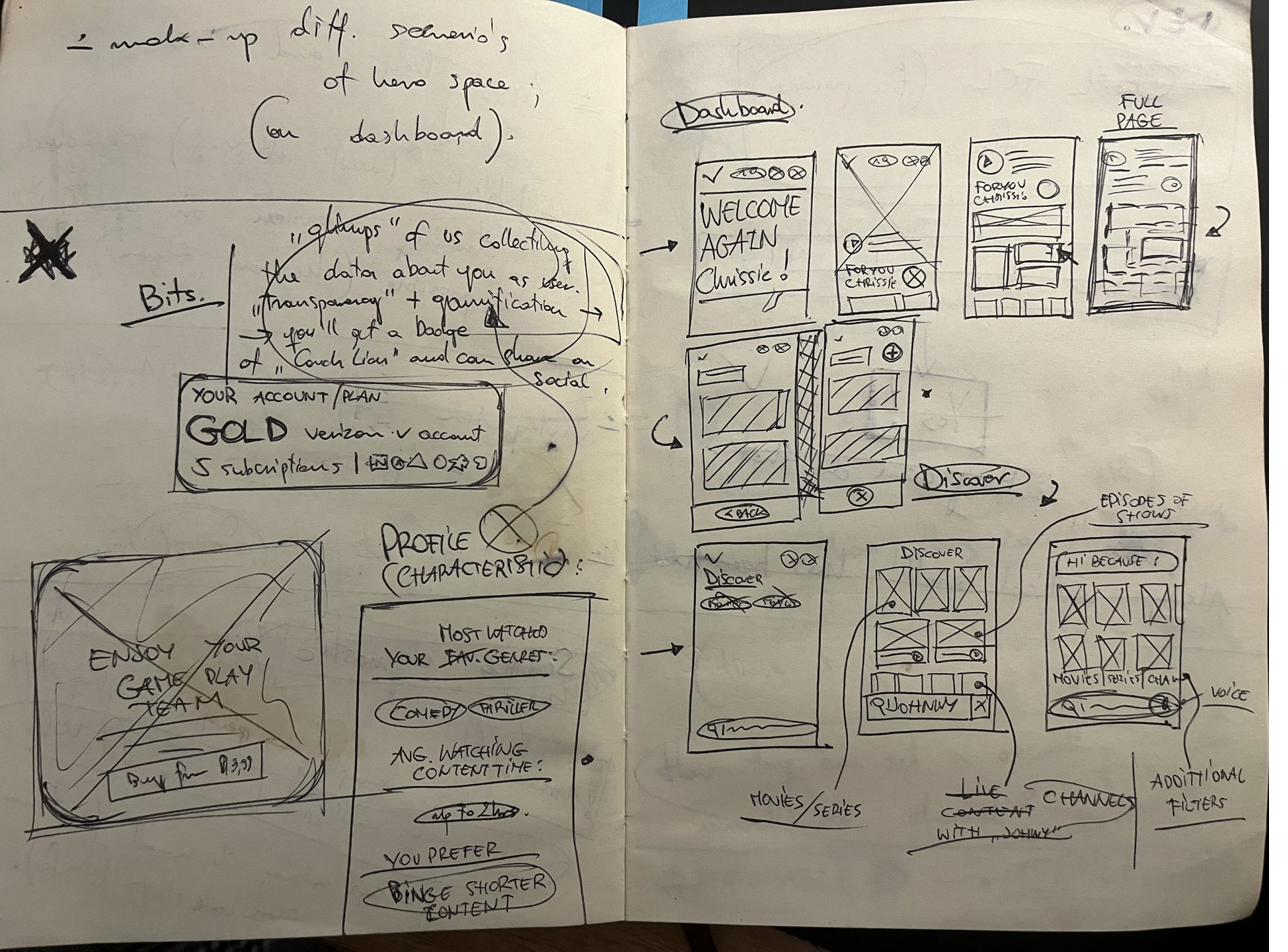 - make-up diff. scenerio's
of hero space ;
(on dashboard).
Bits.
of us collecting
the data about you as user.
"transparency" + gamification →
→ you'll get a badge
of „Couch Lion" and can share on
social.
YOUR ACCOUNT/PLAN
GOLD verizon v account
5 subscriptions |
ENJOY YOUR
GAME PLAY
TEAM
Buy for $13,99
PROFILE
(CHARACTERISTIC):
MOST WATCHED
YOUR FAV. GENRES:
COMEDY THRILLER
AVG. WATCHING
CONTENT TIME:
up to 2 hrs.
YOU PREFER
BINGE SHORTER
CONTENT
Dashboard.
FULL
PAGE
WELCOME
AGAIN
Chrissie!
FOR YOU
CHRISSIE
FOR YOU
CHRISSIE
< BACK
Discover
EPISODES OF
SHOWS
Discover
DISCOVER
Q JOHNNY X
HI BECAUSE :
MOVIES | SERIES | CHA
Q
VOICE
MOVIES/SERIES
LIVE
CONTENT
WITH „JOHNY"
CHANNELS
ADDITTIONAL
FILTERS